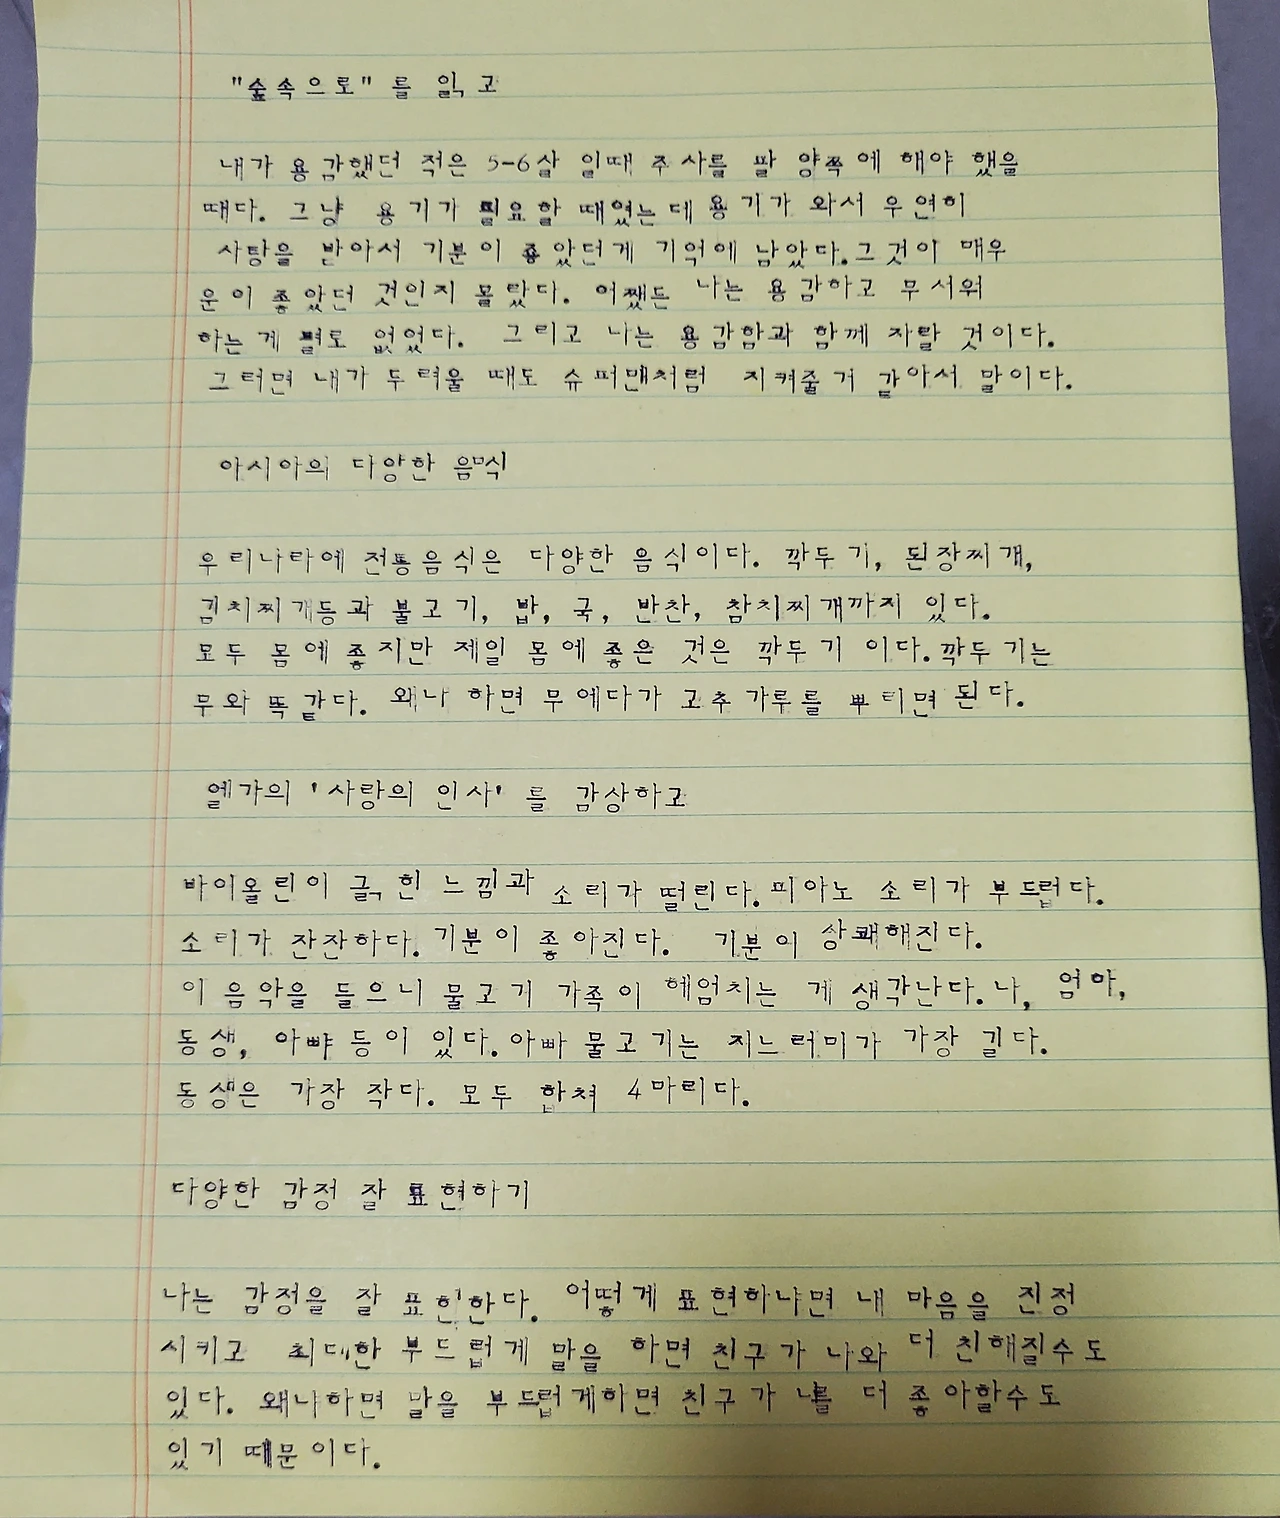 "숲속으로"를 읽고
내가 용감했던 적은 5-6살 일때 주사를 팔 양쪽에 해야 했을
때다. 그냥 용기가 필요할 때었는데 용기가 와서 우연히
사탕을 받아서 기분이 좋았던게 기억에 남았다. 그것이 매우
운이 좋았던 것인지 몰랐다. 어쨌든 나는 용감하고 무서워
하는 게 별로 없었다. 그리고 나는 용감함과 함께 자랄 것이다.
그러면 내가 두려울 때도 슈퍼맨처럼 지켜줄거 같아서 말이다.
아시아의 다양한 음식
우리나라에 전통음식은 다양한 음식이다. 깍두기, 된장찌개,
김치찌개등과 불고기, 밥, 국, 반찬, 참치찌개까지 있다.
모두 몸에 좋지만 제일 몸에 좋은 것은 깍두기 이다. 깍두기는
무와 똑같다. 왜나 하면 무에다가 고추가루를 뿌리면 된다.
엘가의 '사랑의 인사'를 감상하고
바이올린이 긁힌 느낌과 소리가 떨린다. 피아노 소리가 부드럽다.
소리가 잔잔하다. 기분이 좋아진다. 기분이 상쾌해진다.
이 음악을 들으니 물고기 가족이 헤엄치는 게 생각난다. 나, 엄마,
동생, 아빠 등이 있다. 아빠 물고기는 지느러미가 가장 길다.
동생은 가장 작다. 모두 합쳐 4마리다.
다양한 감정 잘 표현하기
나는 감정을 잘 표현한다. 어떻게 표현하냐면 내 마음을 진정
시키고 최대한 부드럽게 말을 하면 친구가 나와 더 친해질수도
있다. 왜나하면 말을 부드럽게하면 친구가 나를 더 좋아할수도
있기 때문이다.